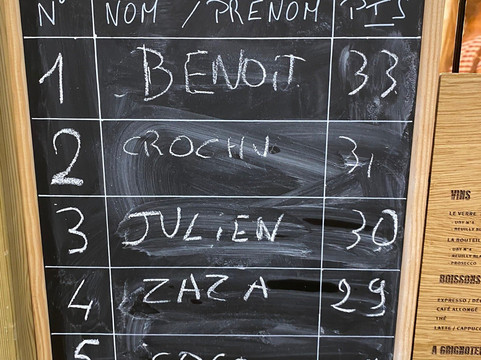 N° NOM / PRENOM PTS
1 BENOIT 33
2 CROCHU 31
3 JULIEN 30
4 ZAZA 29
5
VINS
LE VERRE
LA BOUTEILLE
PROSECCO
BOISSONS
EXPRESSO / DÉ
CAFÉ ALLONGÉ
THÉ
LATTE / CAPPUCC
A GRIGNOTER